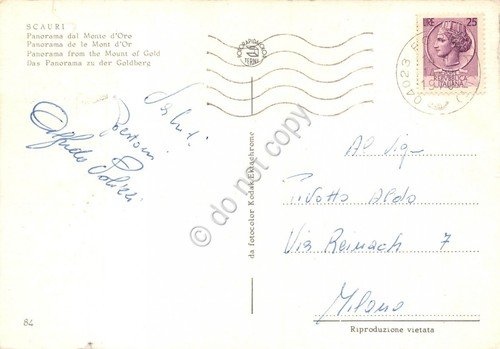 SCAURI
Panorama dal Monte d'Oro
Panorama de le Mont d'Or
Panorama from the Mount of Gold
Das Panorama zu der Goldberg
LIRE 25
04023
Saluti
Alfredo
da fotocolor Kodak Ektachrome
© do not copy
Al Sig.
Aldo
Via Reinach 7
Milano
84
Riproduzione vietata